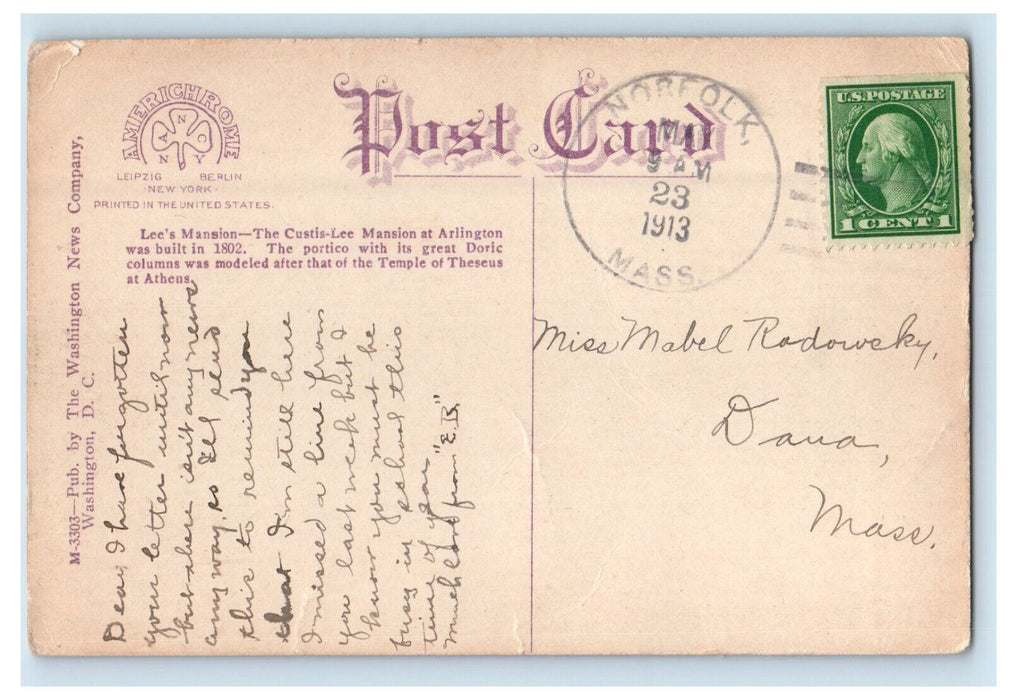 AMERICHROME
A N C
N Y
LEIPZIG BERLIN
· NEW YORK ·
PRINTED IN THE UNITED STATES.
Post Card
NORFOLK,
9 AM
23
1913
MASS.
U.S. POSTAGE
1 CENT 1
M-3303—Pub. by The Washington News Company,
Washington, D. C.
Lee's Mansion—The Custis-Lee Mansion at Arlington
was built in 1802. The portico with its great Doric
columns was modeled after that of the Temple of Theseus
at Athens.
Dear, I have forgotten
your letter until now
but there isn't any news
anyway, so I'll send
this to remind you
that I'm still here
I missed a line from
you last week but I
know you must be
busy in school this
time of year
much love from "E.B."
Miss Mabel Radowsky,
Dana,
Mass.